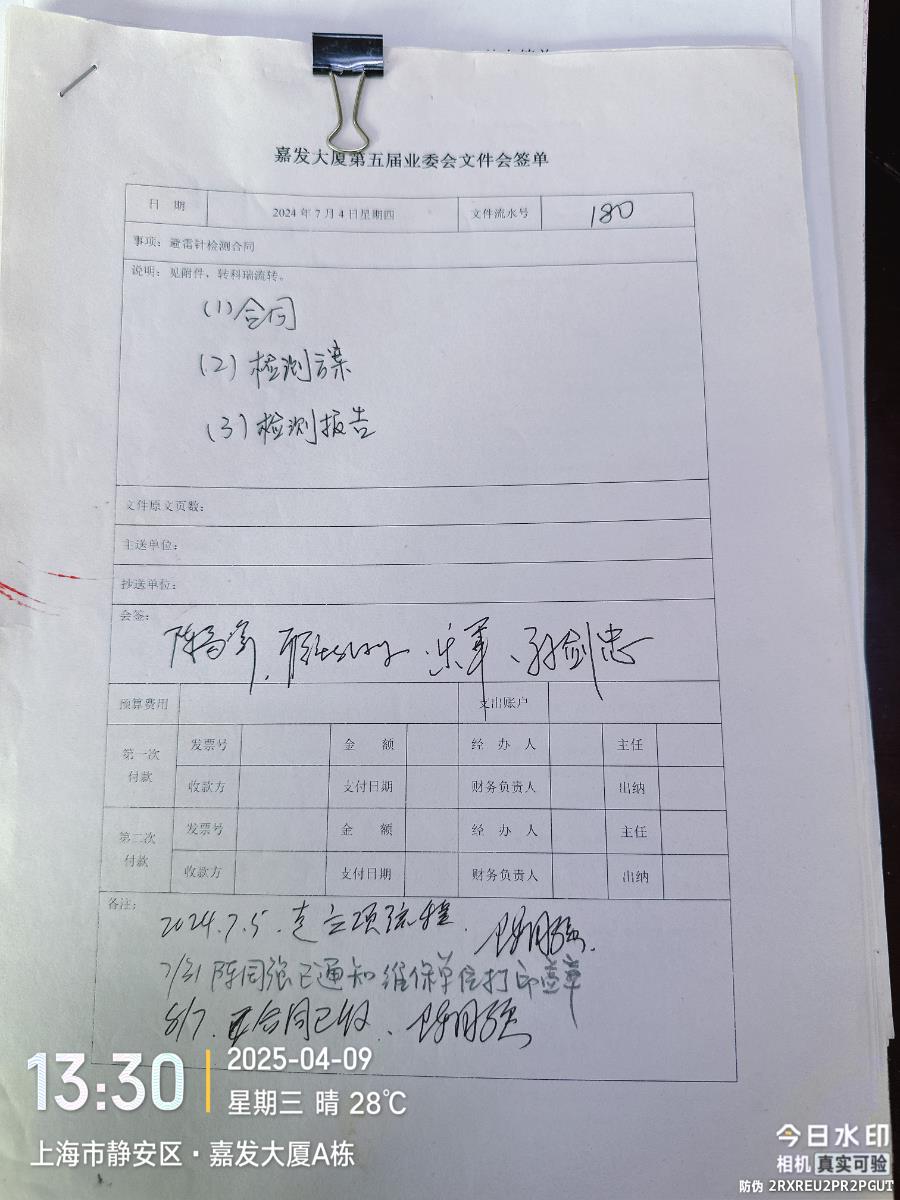 嘉发大厦第五届业委会文件会签单
日 期 2024年7月4日星期四 文件流水号 180
事项：避雷针检测合同
说明：见附件，转科瑞流转。
(1) 合同
(2) 检测方案
(3) 检测报告
文件原文页数：
主送单位：
抄送单位：
会签：
乐军、孙剑忠
预算费用 支出账户
第一次付款 发票号 金 额 经 办 人 主任
收款方 支付日期 财务负责人 出纳
第二次付款 发票号 金 额 经 办 人 主任
收款方 支付日期 财务负责人 出纳
备注：
2024.7.5.走立项流程. 陈国强.
7/31 陈国强已通知维保单位打印盖章
8/7. 合同已收、陈国强
13:30 2025-04-09
星期三 晴 28℃
上海市静安区·嘉发大厦A栋
今日水印
相机 真实可验
防伪 2RXREU2PR2PGUT